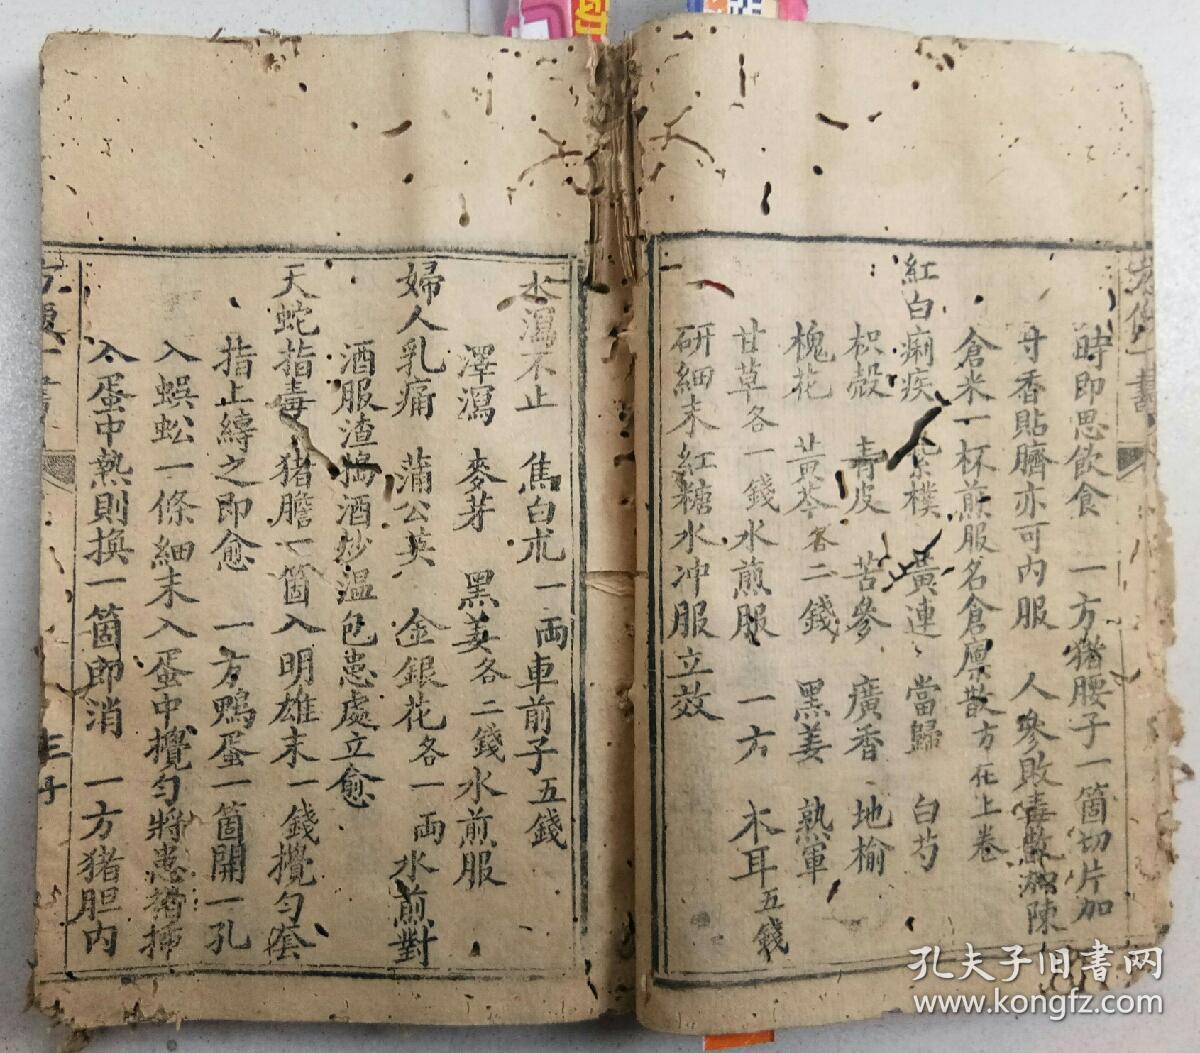 時即思飲食 一方猪腰子一箇切片加
甘香貼臍亦可內服 人參敗毒散加陳
倉米一杯煎服名倉廩散方在上卷
紅白痢疾 樸 黃連 當歸 白芍
枳殼 青皮 苦參 廣香 地榆
槐花 黃芩各二錢 黑姜 熟軍
甘草各一錢水煎服 一方 木耳五錢
研細末紅糖水冲服立效
水瀉不止 焦白朮一兩車前子五錢
澤瀉 麥芽 黑姜各二錢水煎服
婦人乳痛 蒲公英 金銀花各一兩水煎對
酒服渣搗酒炒温包患處立愈
天蛇指毒 猪膽一箇入明雄末一錢攪勻套
指上縛之即愈 一方鴨蛋一箇開一孔
入蜈蚣一條細末入蛋中攪勻將患指插
入蛋中熱則換一箇即消 一方猪胆内
孔夫子旧書网
www.kongfz.com